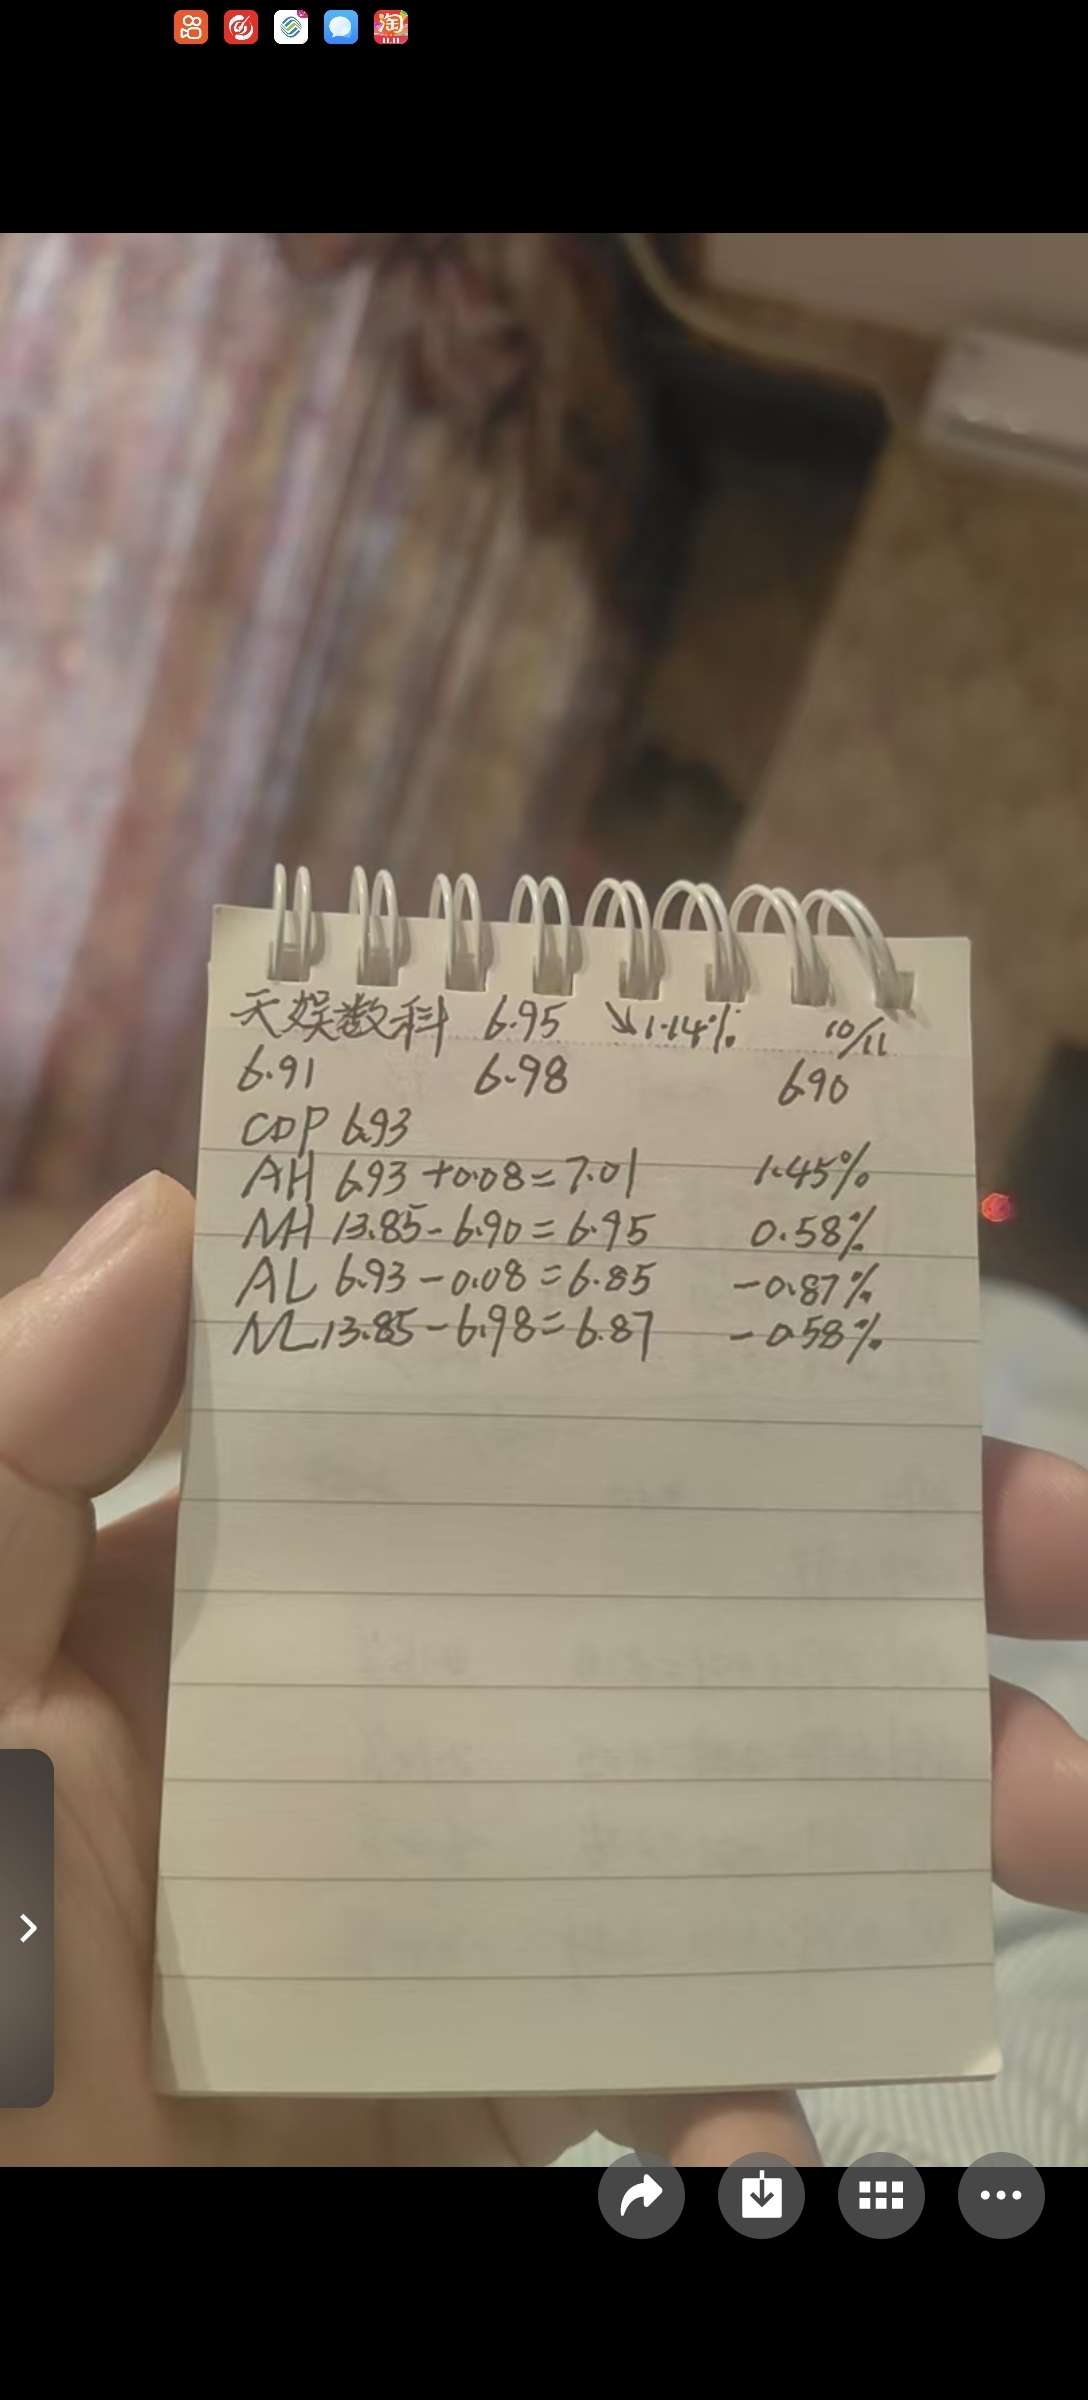 淘
11.11
天娱数科 6.95 ↘1.14% 10/11
6.91 6.98 6.90
CDP 6.93
AH 6.93 +0.08=7.01 1.45%
NH 13.85-6.90=6.95 0.58%
AL 6.93-0.08=6.85 -0.87%
NL 13.85-6.98=6.87 -0.58%